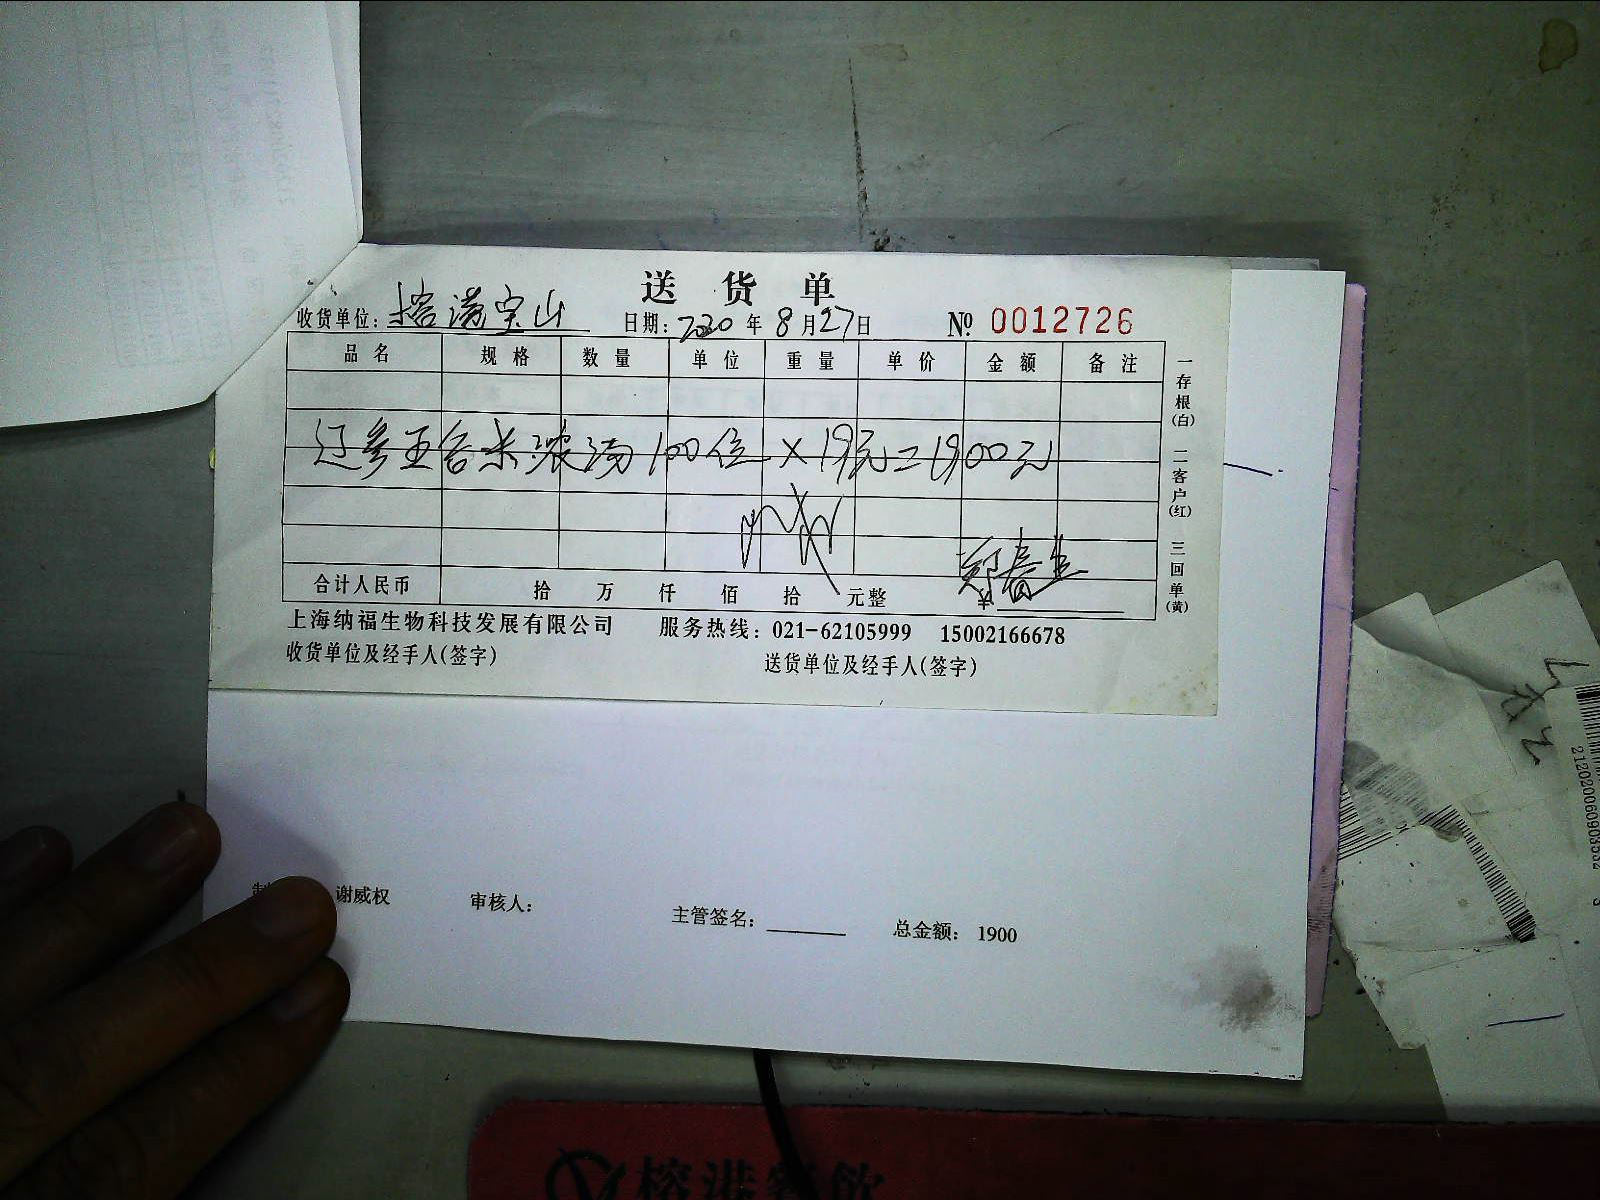 送货单
收货单位: 榕港宝山 日期: 2020年8月27日 № 0012726
品名 规格 数量 单位 重量 单价 金额 备注
辽参玉谷米浓汤100位×19元=1900元
郑春生
合计人民币 拾 万 仟 佰 拾 元整 ¥
上海纳福生物科技发展有限公司 服务热线: 021-62105999 15002166678
收货单位及经手人(签字) 送货单位及经手人(签字)
一存根(白) 二客户(红) 三回单(黄)
谢威权 审核人: 主管签名: 总金额: 1900
榕港餐飲